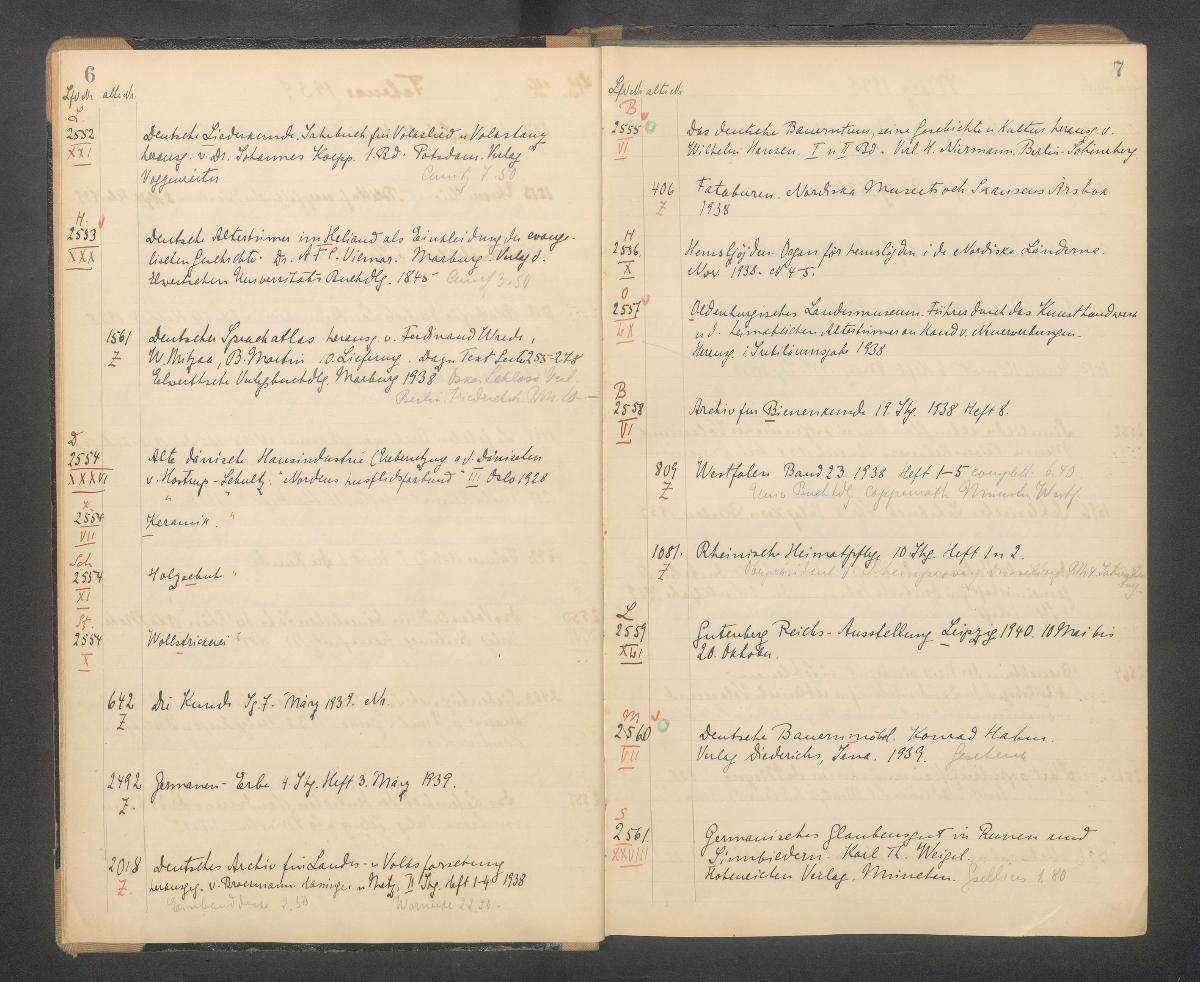 6
Lfd Nr alte Nr.
L.
2552
XXI
Deutsche Liederkunde. Jahrbuch für Volkslied u Volkstanz
herausg. v. Dr. Johannes Koepp. 1. Bd. Potsdam. Verlag
Voggenreiter 7.50
H.
2553
XXX
Deutsche Altertümer im Heliand als Einkleidung der evange-
lischen Geschichte. Dr. A F C. Vilmar. Marburg. Verlag d.
Elwertschen Universitäts Buchdlg. 1845 3.50
1561
Z
Deutscher Sprachatlas herausg. v. Ferdinand Wrede,
W. Mitzka, B. Martin 10. Lieferung. Dazu Text Seite 255-278
Elwertsche Verlgsbuchdlg. Marburg 1938 Oskar Schloss Verl.
Berlin. Friederich RM 10—
D
2554
XXXVI
Alte dänische Hausindustrie (Uebersetzung a.d. Dänischen
v. Hostrup-Schultz. "Nordens husflidsforbund" III Oslo 1928
K.
2554
VII
Keramik. "
Sch
2554
XI
Holzschuh "
St.
2554
X
Wollstrickerei "
642
Z
Die Kunde Jg. 7. März 1939. Nr.
2492
Z.
Germanen-Erbe 4. Jhg. Heft 3. März 1939.
2018
Z.
Deutsches Archiv für Landes- u Volksforschung
herausgeg. v. Brackmann. Hassinger u Metz, II Jhg. Heft 1-4 1938
Einbanddecke 2.50 22.20.
7
Lfd Nr alte Nr.
B
2555
VI
Das deutsche Bauerntum, seine Geschichte u Kultur herausg. v.
Wilhelm Hansen. I u II Bd. Verl. H. Niermann. Berlin-Schöneberg
406
Z
Fataburen. Nordiska Museets och Skansens Årsbok
1938
H
2556.
X
Hemslöjden. Organ för hemslöjden i de Nordiska Länderna.
Nov. 1938. N 4-5.
O
2557
LX
Oldenburgisches Landesmuseum. Führer durch das Kunsthandwerk
u. d. heimatlichen Altertümer an Hand v. Neuerwerbungen.
Herausg. i Jubiläumsjahr 1938
B
2558
VI
Archiv für Bienenkunde 19. Jhg. 1938 Heft 8.
809
Z
Westfalen Band 23 1938 Heft 1-5 complett. 6.40
Univ Buchhdlg Coppenrath Münster Westf.
1081.
Z
Rheinische Heimatpflege 10 Jhg. Heft 1 u 2.
RM 4.
L
2559
XLI
Gutenberg Reichs-Ausstellung Leipzig 1940. 10 Mai bis
20. Oktober.
M
2560
VII
Deutsche Bauernmöbel. Konrad Hahm.
Verlag Diederichs, Jena. 1939. Geschenk
S
2561.
XXVIII
Germanisches Glaubensgut in Runen und
Sinnbildern. Karl Th. Weigel.
Hoheneichen Verlag, München. Gsellius 1.80